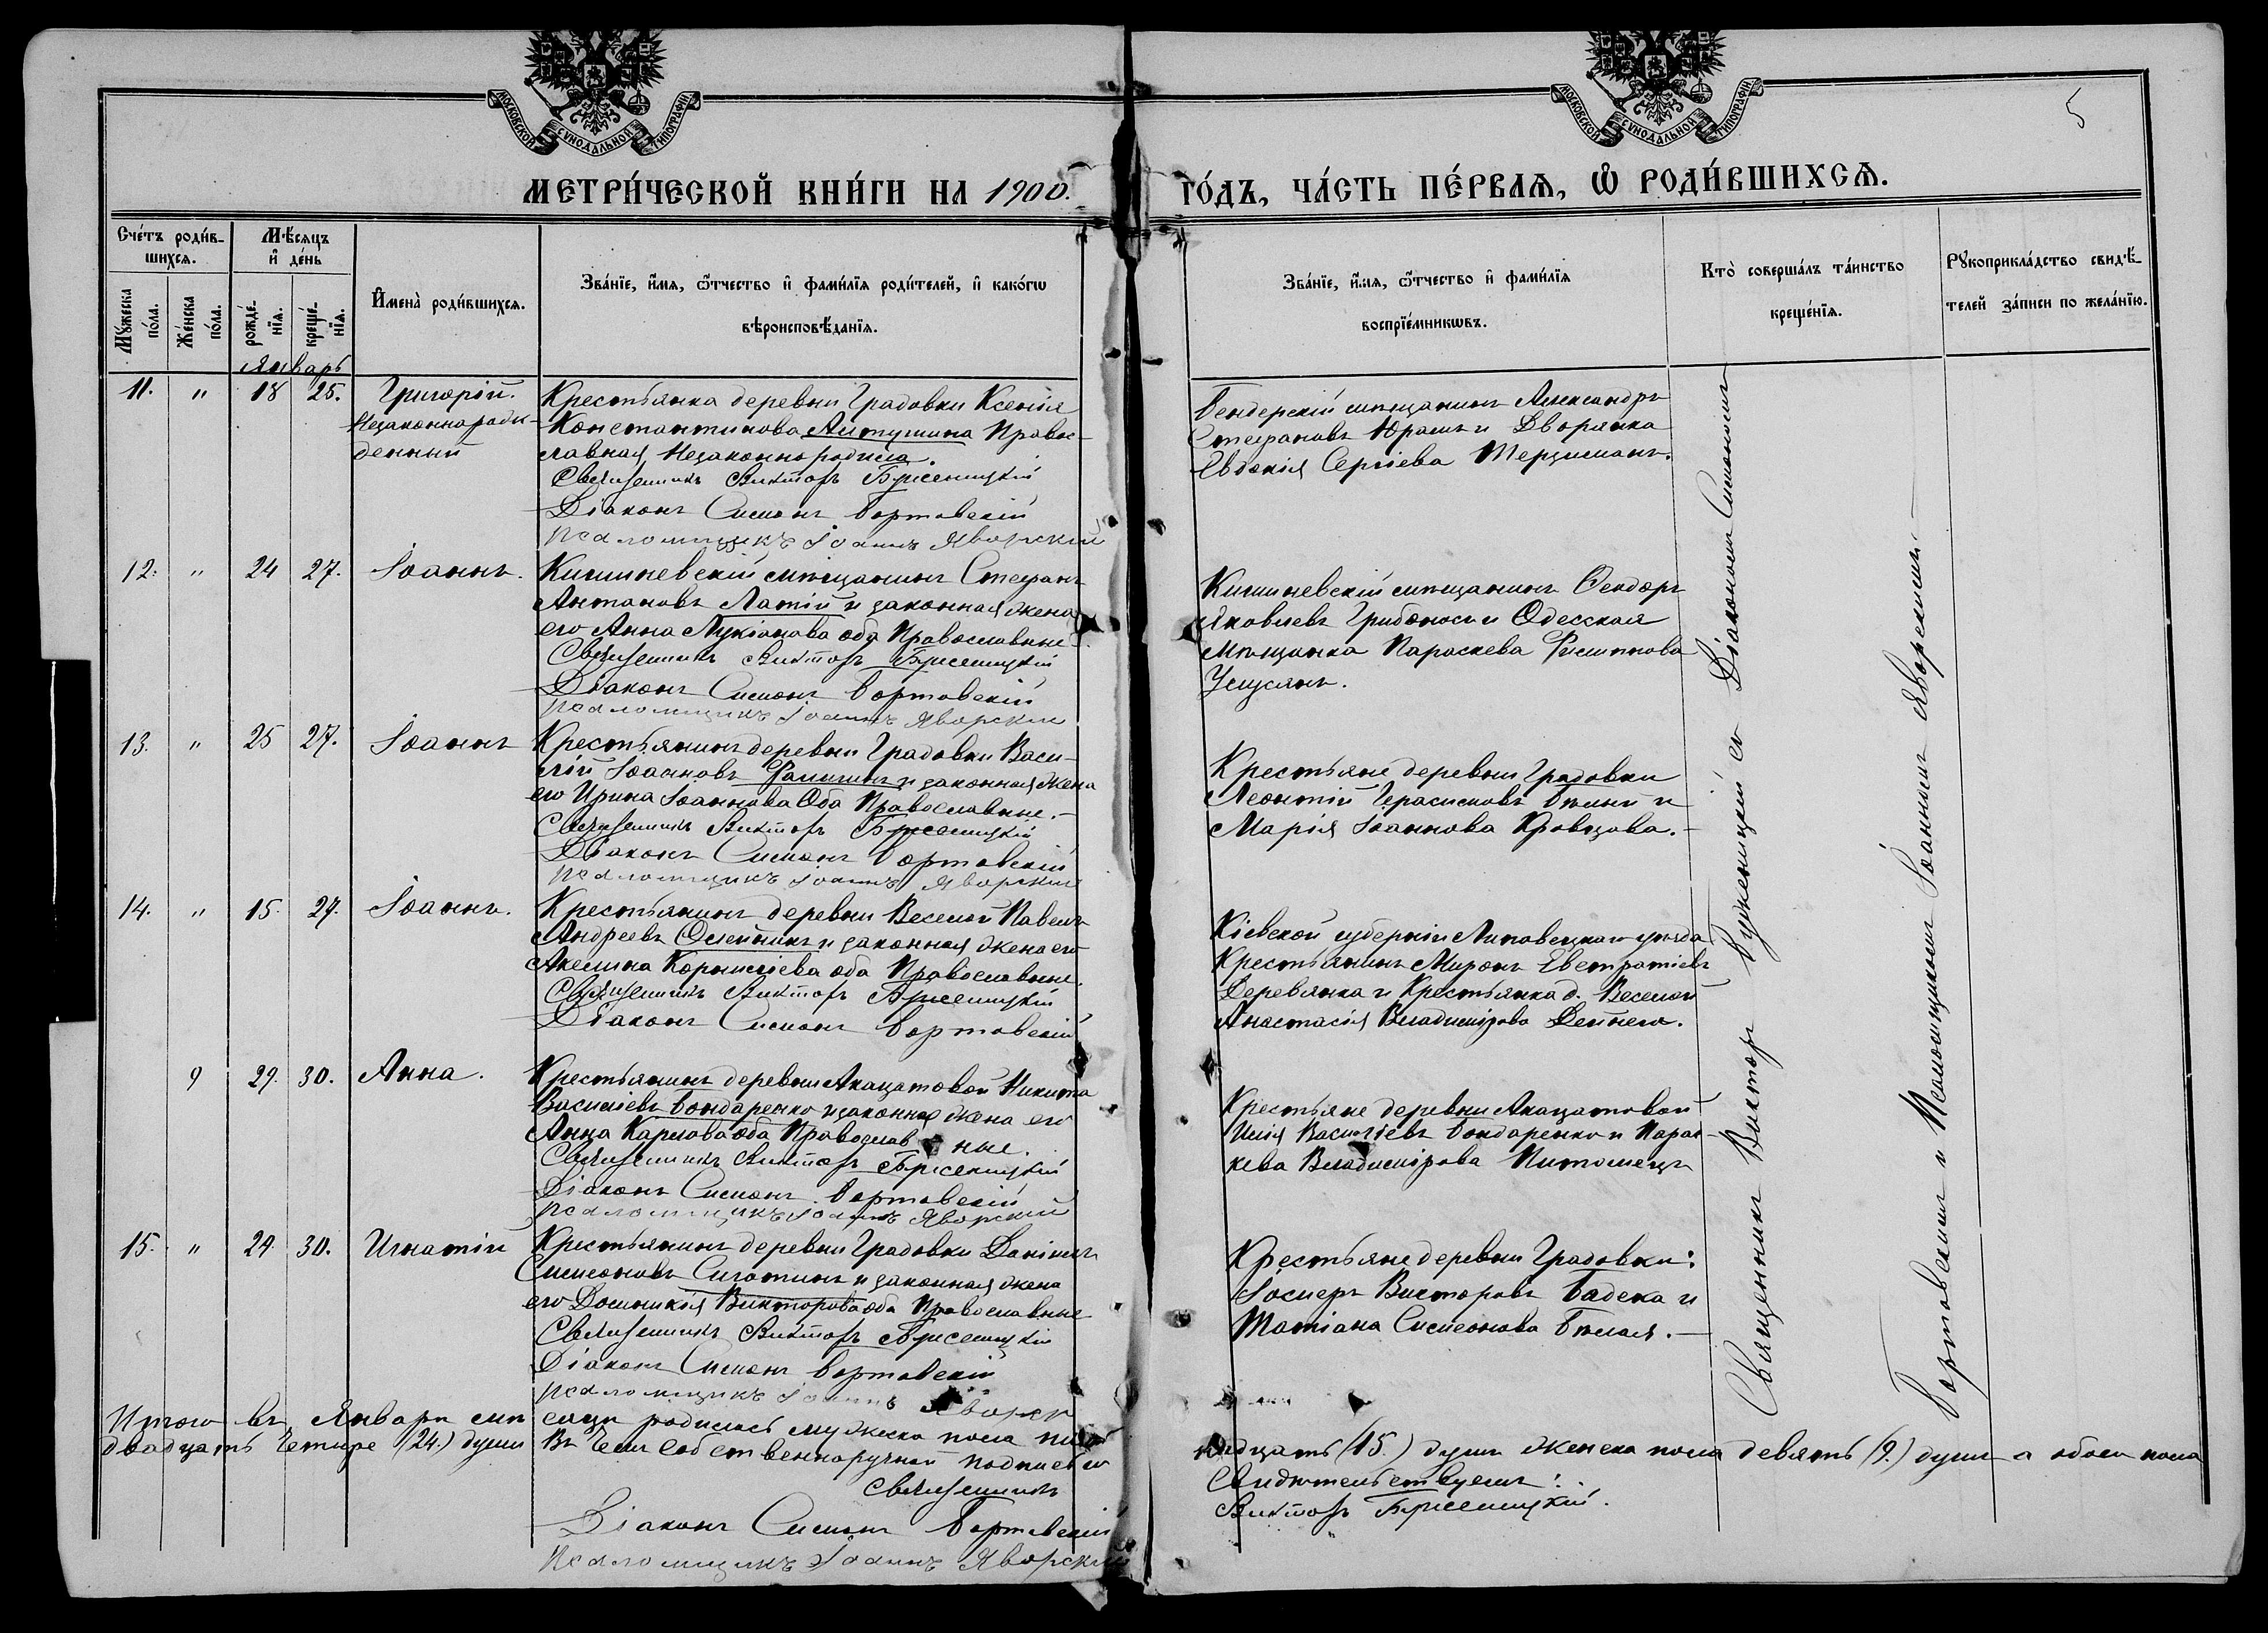 МОСКОВСКОЙ СѴНОДАЛЬНОЙ ТИПОГРАФІИ
МОСКОВСКОЙ СѴНОДАЛЬНОЙ ТИПОГРАФІИ
5
МЕТРИ́ЧЕСКОЙ КНИ́ГИ НА 1900.
ГО́ДЪ, ЧА́СТЬ ПЕ́РВАѦ, Ѽ РОДИ́ВШИХСѦ.
Сче́тъ роди́в-
шихсѧ.
Мꙋ́жеска
по́ла.
Же́нска
по́ла.
Мѣ́сѧцъ
и҆ де́нь
рожде́-
нїѧ.
креще́-
нїѧ.
И҆мена̀ роди́вшихсѧ.
Зва́нїе, и҆́мѧ, ѻ҆́тчество и҆ фамі́лїѧ роди́телей, и҆ како́гѡ
вѣроисповѣ́данїѧ.
Зва́нїе, и҆́мѧ, ѻ҆́тчество и҆ фами́лїѧ
воспрїе́мникѡвъ.
Кто̀ соверша́лъ та́инство
креще́нїѧ.
Рꙋкоприкла́дство свидѣ́-
телей за́писи по жела́нїю.
Январь
11. " 18 25. Григорій.
Незаконнорож-
денный
Крестьянка деревни Градовки Ксенія
Константинова Правос-
лавная Незаконно родила.
Священникъ Викторъ Буженицкій
Діаконъ Симонъ Бортовскій
Псаломщикъ Іоаннъ Яворский
Бендерскій мѣщанинъ Александръ
Стефановъ Юрашъ и Дворянка
Евдокія Сергіева Терциманъ.
12. " 24 27. Іоаннъ.
Кишиневскій мѣщанинъ Стефанъ
Антоновъ Латій и законная жена
его Анна Лукіанова оба Православные.
Священникъ Викторъ Буженицкій
Діаконъ Симонъ Бортовскій
Псаломщикъ Іоаннъ Яворский
Кишиневскій мѣщанинъ Ѳеодоръ
Яковлевъ Грибоносъ и Одесская
Мѣщанка Параскева Филиппова
13. " 25 27. Іоаннъ
Крестьянинъ деревни Градовки Васи-
лій Іоанновъ и законная жена
его Ирина Іоаннова Оба Православные.-
Священникъ Викторъ Буженицкій
Діаконъ Симонъ Бортовскій
Псаломщикъ Іоаннъ Яворский
Крестьяне деревни Градовки
Леонтій Герасимовъ Бѣлый и
Марія Іоаннова Кравцова.-
14. " 15. 27. Іоаннъ.
Крестьянинъ деревни Веселой Павелъ
Андреевъ Олейникъ и законная жена его
Акелина Корнилієва оба Православные.
Священникъ Викторъ Буженицкій
Діаконъ Симонъ Бортовскій
Кіевской губерніи Липовецкаго уѣзда
Крестьянинъ Миронъ Евстратіевъ
Деревянка и Крестьянка д. Веселой
Анастасія Владимірова Дейнега.
9 29. 30. Анна.
Крестьянинъ деревни Акацатовой Никита
Василіевъ Бондаренко и законная жена его
Анна Карпова оба Православ ные.
Священникъ Викторъ Буженицкій
Діаконъ Симонъ Бортовскій
Псаломщикъ Іоаннъ Яворский
Крестьяне деревни Акацатовой
Илія Василіевъ Бондаренко и Парас-
кева Владимірова Питомецъ
15. " 29. 30. Игнатій
Крестьянинъ деревни Градовки Даніилъ
Симеоновъ и законная жена
его Домникія Викторова оба Православные
Священникъ Викторъ Буженицкій
Діаконъ Симонъ Бортовскій
Псаломщикъ Іоаннъ Яворск
Крестьяне деревни Градовки:
Іосифъ Викторовъ Бадека и
Татіана Симеонова Бѣлая.-
Священникъ Викторъ Буженицкій съ Діакономъ Симономъ
Бортовскимъ и Псаломщикомъ Іоанномъ Яворскимъ.-
Итого въ Январи мѣ сяцѣ родилось мужеска пола пят надцать (15.) душъ женска пола девять (9.) душъ а обоего пола
двадцать четыре (24.) души Въ чемъ собственноручной подписью Свидѣтельствуемъ:
Священникъ Викторъ Буженицкій.
Діаконъ Симонъ Бортовскій
Псаломщикъ Іоаннъ Яворский